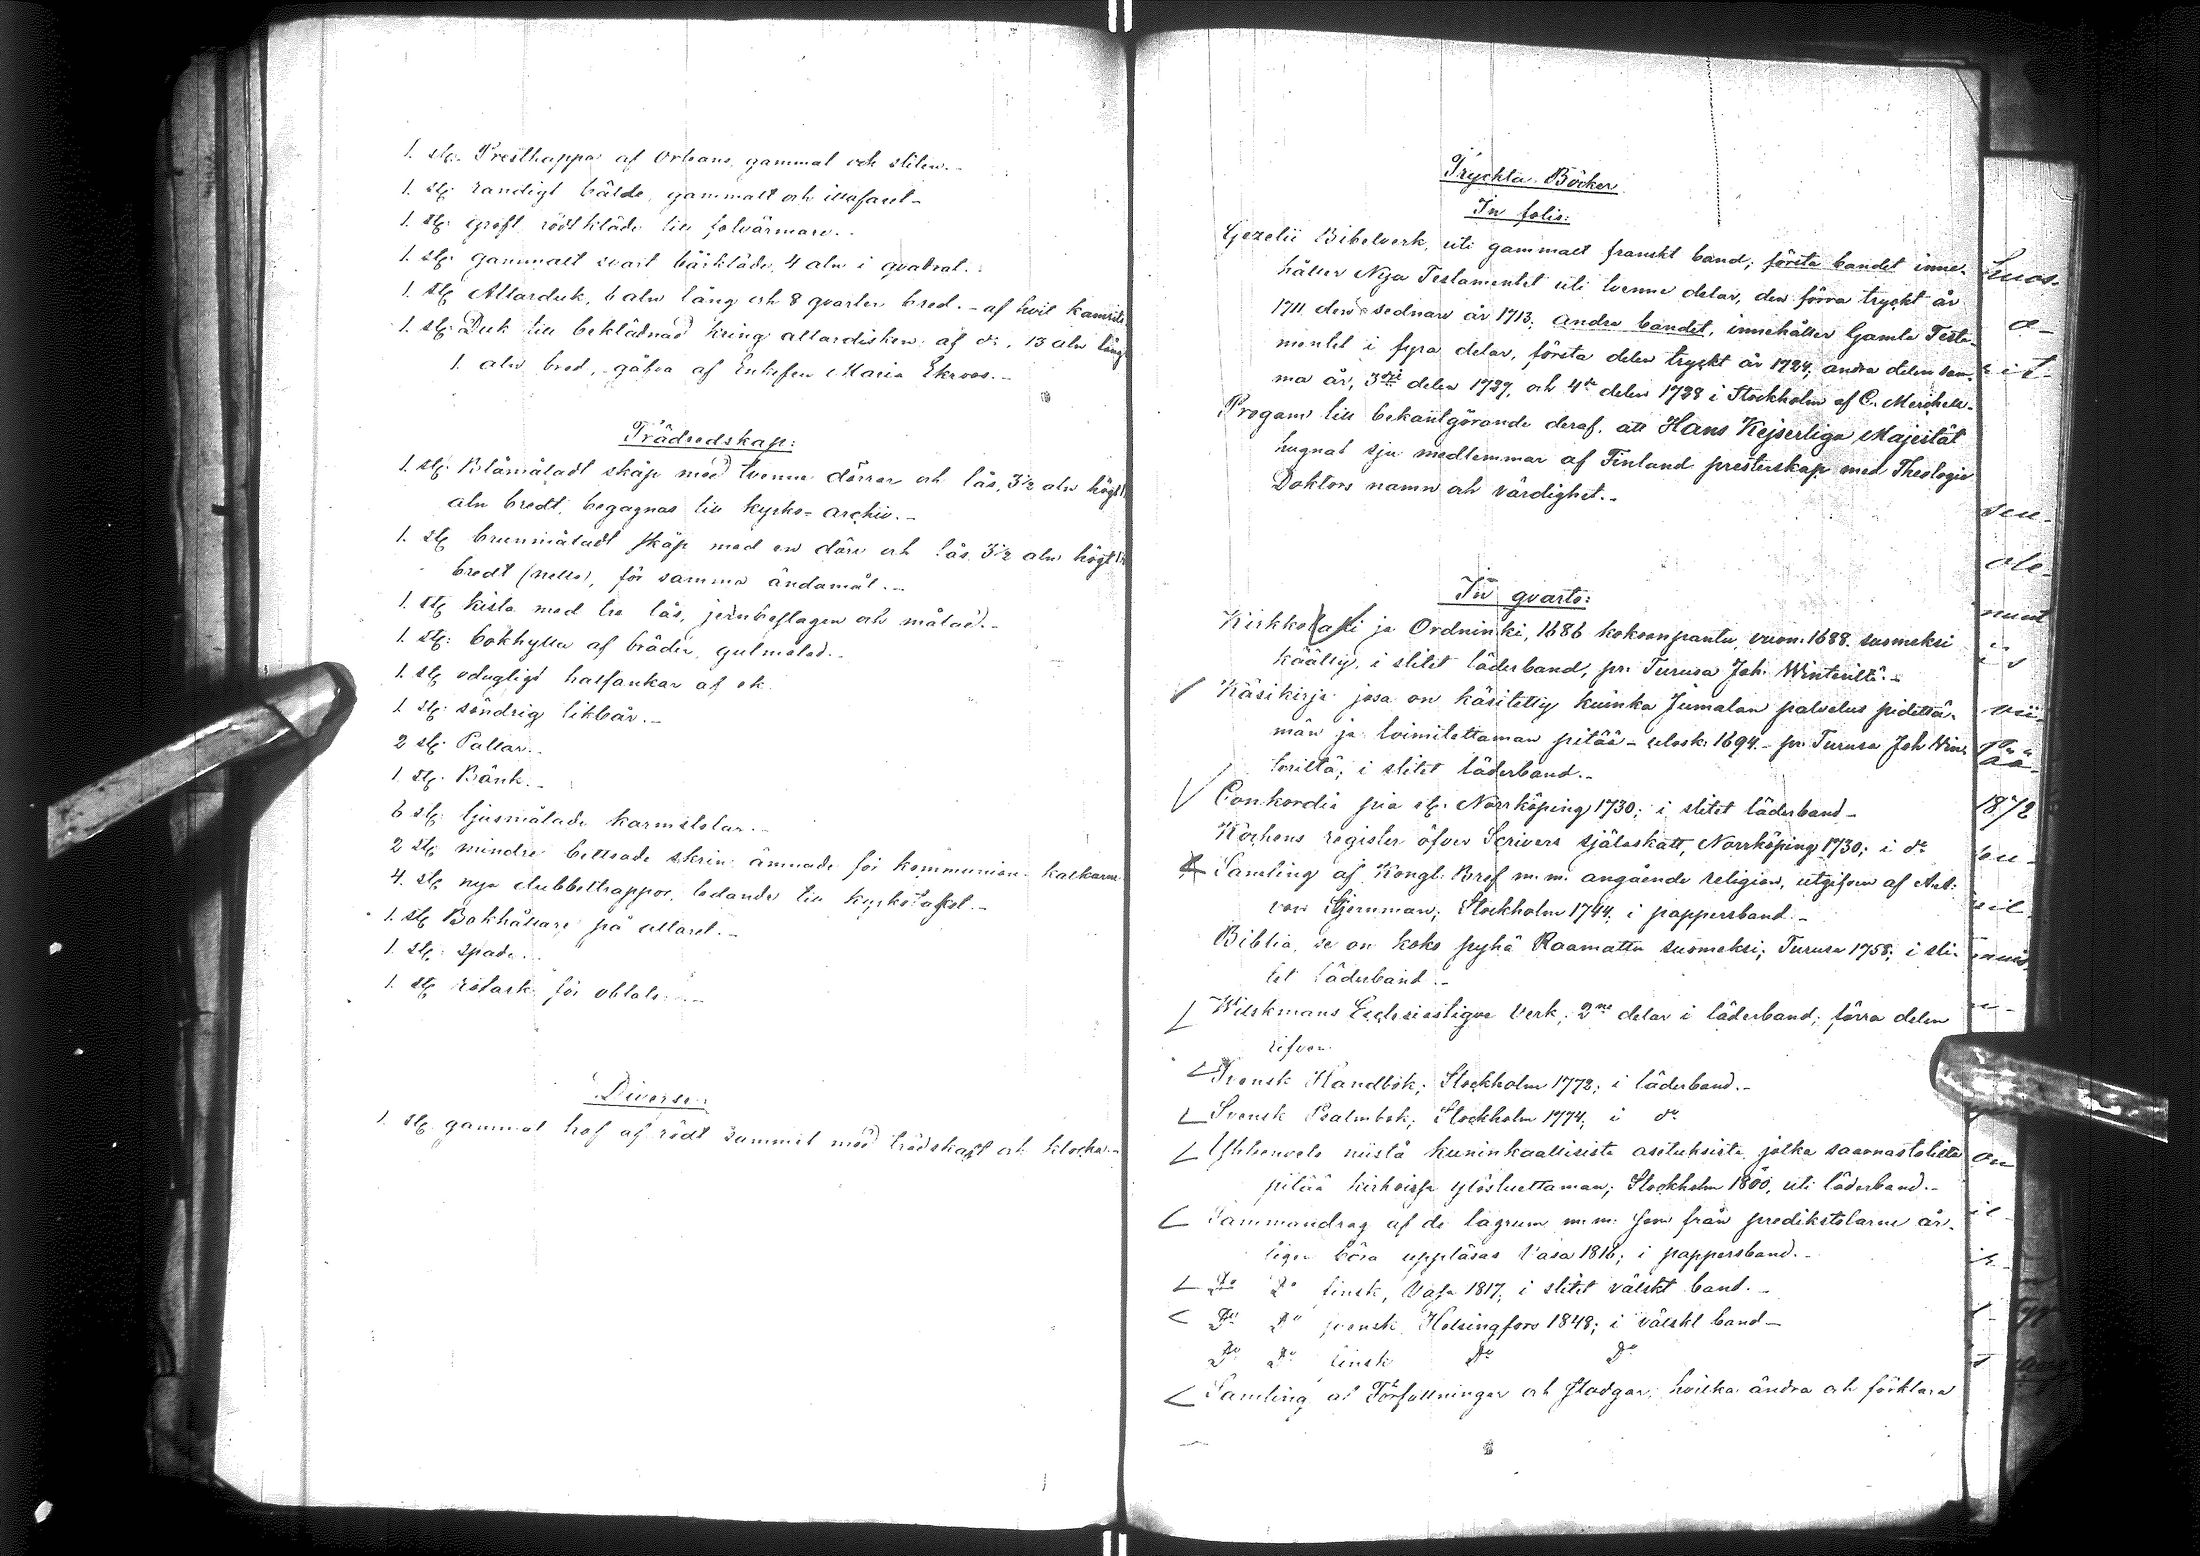 1. stç. Prestkappa af Orleans, gammal och sliten.-
1. stç. randigt bälde, gammalt och illafaret-
1. stç. groft rödt kläde till fotvärmare..
1. stç. gammalt svart bårkläde, 4 aln i qvadrat.
1. stç Altarduk, 6 aln lång och 8 qvarter bred.- af hvit
1. stç. Duk till beklädnad kring altardisken af do. 13 aln lång
1. aln bred, gåfva af Enkefru Maria Ekroos.-
Trädredskap:
1. stç. Blåmåladt skåp med tvenne dörrar och lås, 3½ aln högt
aln bredt, begagnas till kyrko-archiv.-
1. stç brunmåladt skåp med en dörr och lås 3½ aln högt
bredt (nello), för samma ändamål.-
1. stç kista med tre lås, jernbeslagen och målad.-
1. stç: bokhylla af bräder, gulmålad..
1. stç odugligt halfankar af ek.
1 stç. söndrig likbår.-
2 stç. Pallar..
1. stç. Bänk..
6 stç. ljusmålade karmstolar..
2 stç mindre betsade skrin ämnade för kommunion- kalkarne
4. stç nya dubbeltrappor, ledande till kyrkotaket.-
1. stç Bokhållare på altaret.-
1. stç. spade..
1. stç för oblater.-
Diverse:
1. stç. gammal håf af rödt sammit med trädskaft och klocka.-
Tryckta Böcker
In folio:
Gezelii Bibelverk, uti gammalt franskt band; första bandet inne-
håller Nya Testamentet uti tvenne delar, den förra tryckt år
1711 den sednare år 1713; andra bandet, innehåller Gamla Testa-
mentet i fyra delar, första delen tryckt år 1724, andra delen sam-
ma år, 3dje delen 1727, och 4de delen 1728 i Stockholm af C. Merckell-
Program till bekantgörande deraf, att Hans Kejserliga Majestät
hugnat sju medlemmar af Finland presterskap med Theologie
Doktors namn och värdighet.-
In qvarto:
Kirkkolaki ja Ordninki, 1686 kokoonpantu, vuon: 1688. suomeksi
käätty, i slitet läderband, pr. Turusa Joh. Winteriltä.-
Käsikirja josa on käsitetty kuinka Jumalan palvelus pidettä-
män ja toimitettaman pitää - ulosk: 1694.- pr. Turusa Joh Win-
teriltä; i slitet läderband.-
Conkordia pia stç. Norrköping 1730; i slitet läderband-
Kochens register öfver Scrivers själaskatt, Norrköping 1730; i do
Samling af Kongl: Bref m.m. angående religion, utgifven af And:
von Stjernman; Stockholm 1744. i pappersband.-
Biblia, se on koko pyhä Raamattu suomeksi; Turusa 1758; i sli-
tet läderband.-
Wilskmans Ecclesiastique Verk; 2ne delar i läderband; förra delen
rifven
Svensk Handbok; Stockholm 1772; i läderband.-
Svensk Psalmbok; Stockholm 1774, i do
Ylikenvelo niistä kuninkaallisista asetuksista, jotka saarnastolista
pitää kirkoissa ylösluettaman; Stockholm 1800, uti läderband.-
Sammandrag af de lagrum m.m. som från predikstolarne år-
ligen böra uppläsas Vasa 1816; i pappersband.-
Do Do finsk, Vasa 1817; i slitet välskt band.-
Do Do svensk Helsingfors 1848; i välskt band-
Do Do finsk Do Do
Samling af Författningar och Stadgar; hvilka ändra och förklara
1872